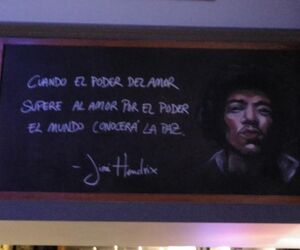 CUANDO EL PODER DEL AMOR
SUPERE AL AMOR POR EL PODER
EL MUNDO CONOCERÁ LA PAZ.
- Jimi Hendrix